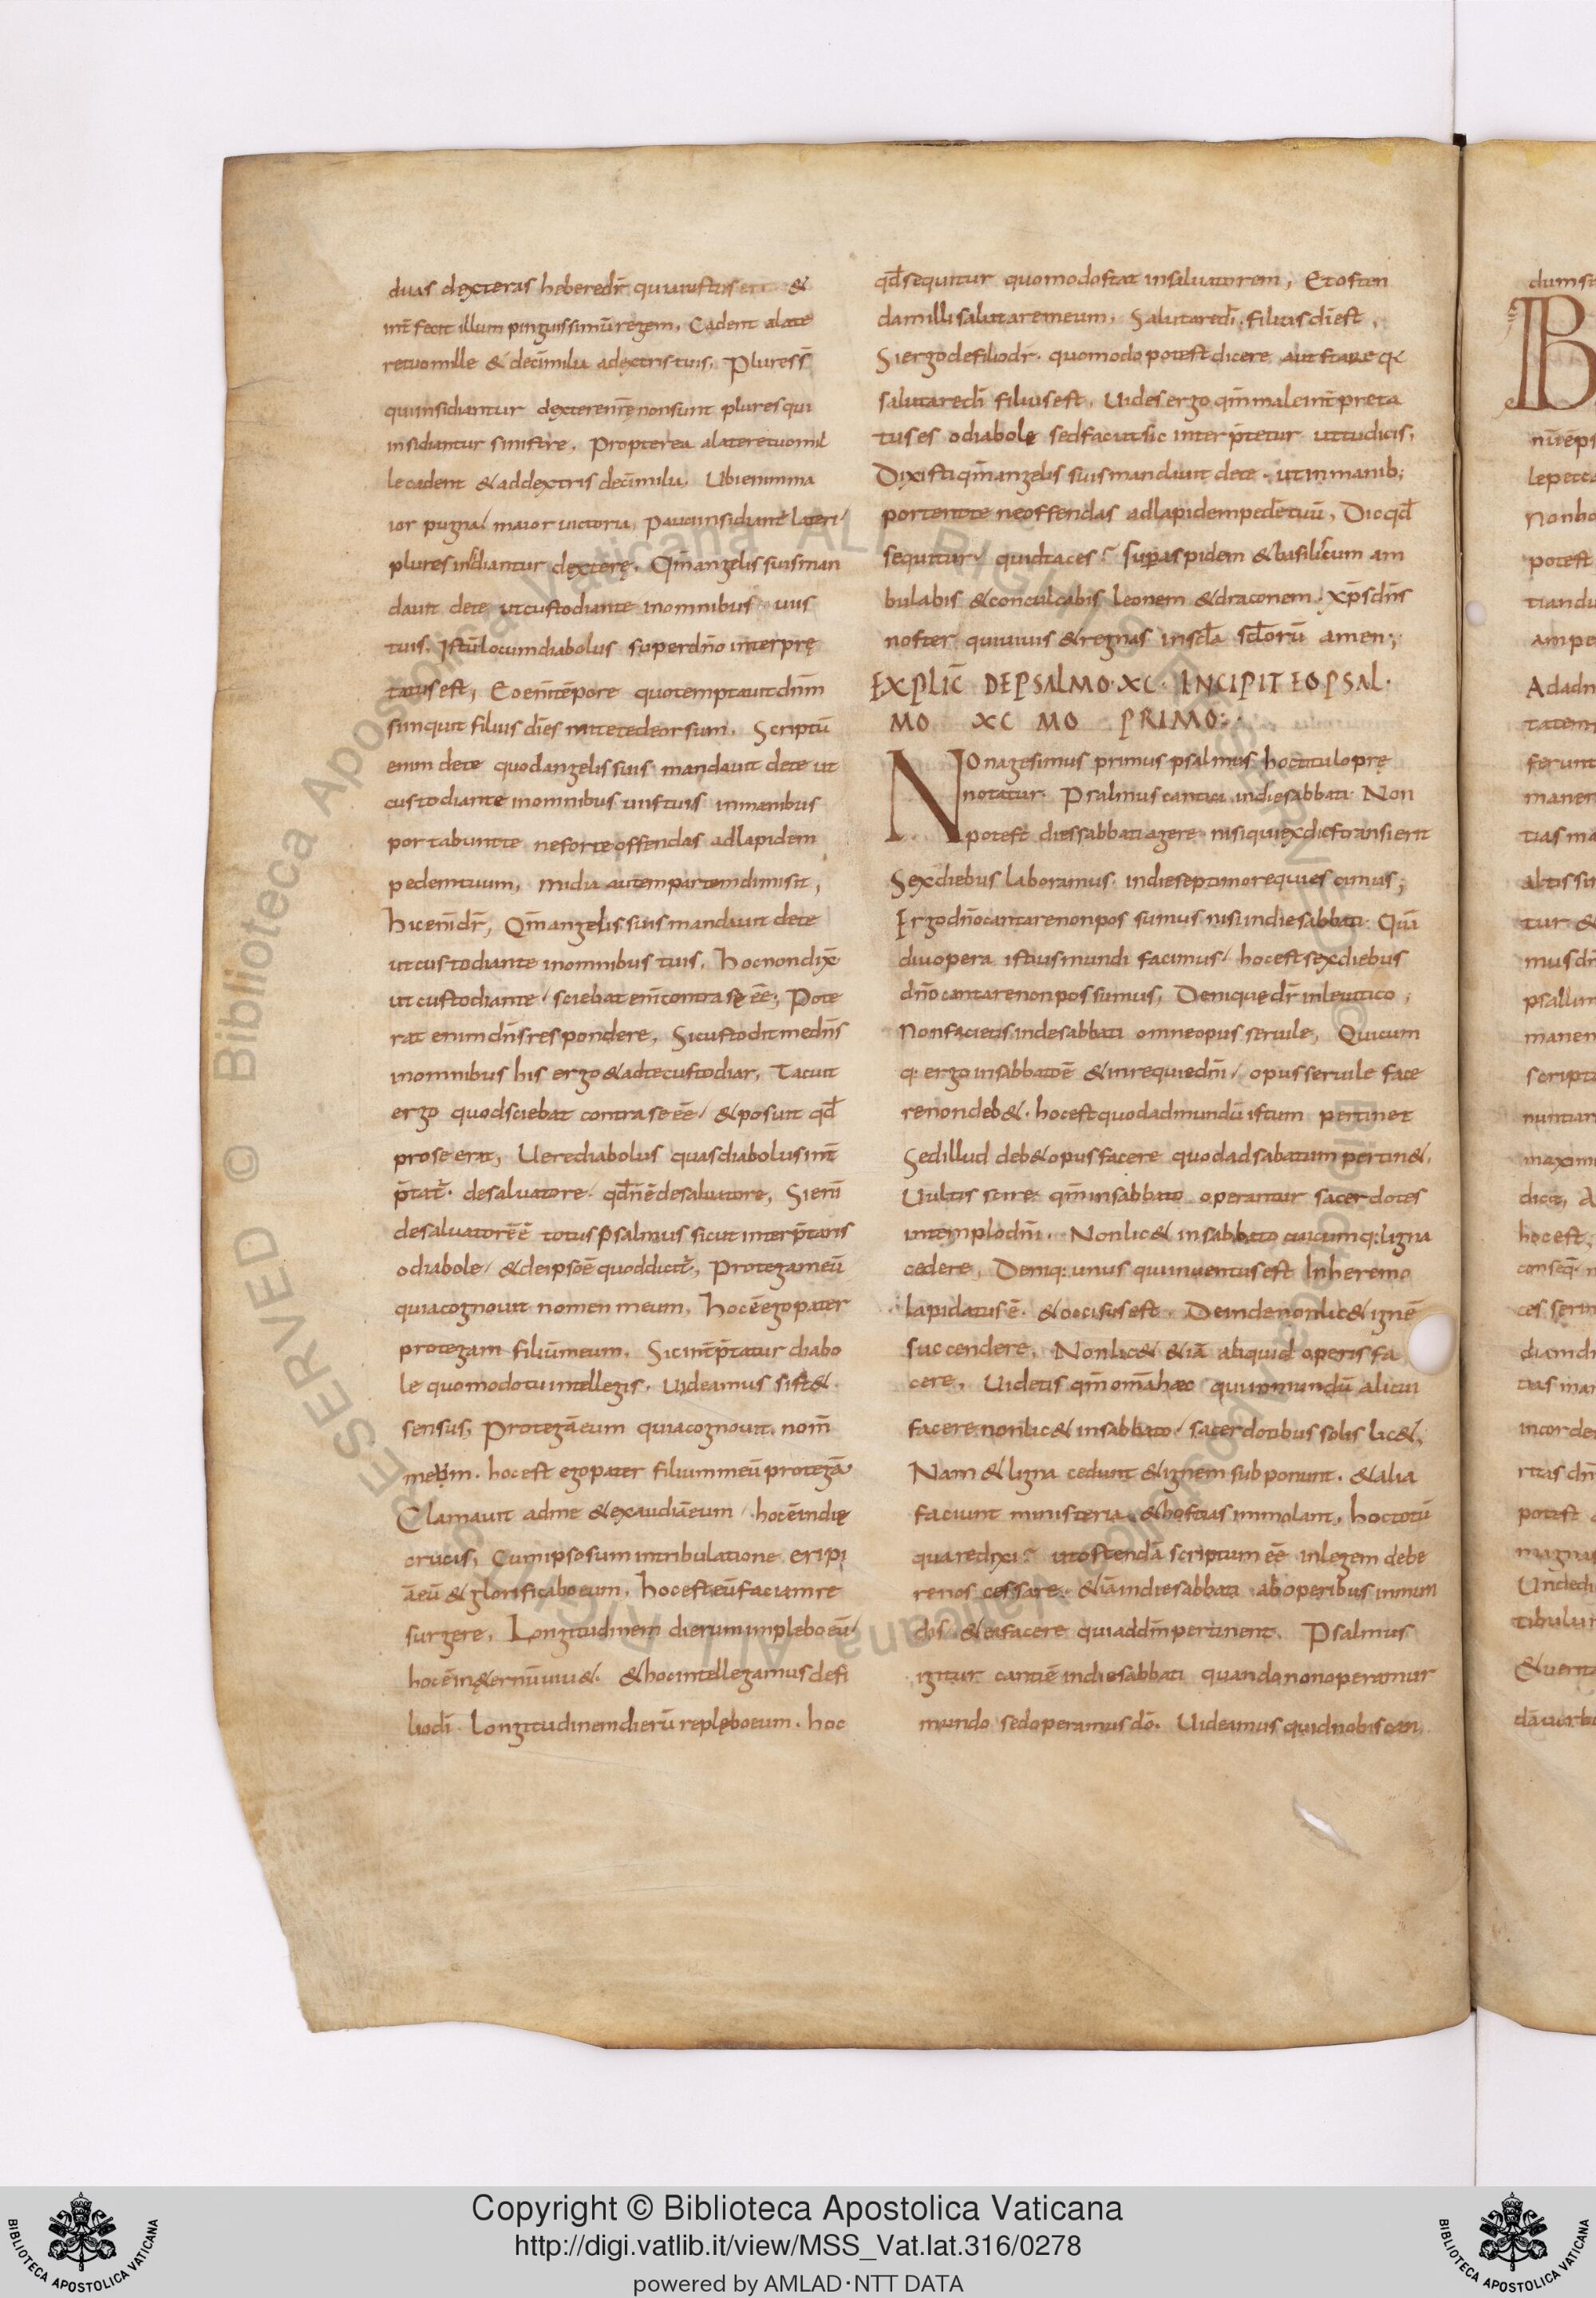 duas dexteras heberedr̄ quiiustus erat &
int̄fecit illum pinguissimū regem. Cadent alate
retuo mille & decēmilia adextris tuis. Plures s̄
quiinsidiantur dexterenr̄e nonsunt plures qui
insidiantur sinistre. Propterea alateretuo mil
le cadent & addextris decēmilia. Ubi enim ma
ior pugna maior uictoria, pauci insidiant̄ lateri
plures insidiantur dexterę. Qm̄ angelis suis man
dauit dete ut custodiant te inomnibus uiis
tuis. Istūlocum diabolus super dn̄o interprę
tatus est, Eo eni tēpore quo temptauit dnm̄
si inquit filius dīes mitte te deorsum. Scriptū
enim dete quod angelis suis mandauit dete ut
custodiant te inomnibus uiis tuis inmanibus
portabunt te neforte offendas adlapidem
pedem tuum, media autem partem dimisit,
hic enī dr̄, Qm̄ angelis suis mandauit dete
ut custodiant te inomnibus tuis. hoc non dix̄
ut custodiant te sciebat eni contra sę ēē; Pote
rat enim dn̄s respondere. Si custodit me dn̄s
inomnibus his ergo & ad te custodiar. Tacuit
ergo quod sciebat contra se ēē & posuit qd̄
pro se erat, Uere diabolus quas diabolus int̄
p̄tat̄. desaluatore qd̄ n̄ē desaluatore, Si eni
desaluatorē ē totus psalmus sicut interp̄taris
o diabole & deipso ē quod dicit̄, Protegam eū
quia cognouit nomen meum. hoc ē ego pater
protegam filiū meum. Sic int̄p̄tatur diabo
le quomodo tu intellegis. Uideamus si st&
sensus, Protegā eum quia cognouit nom̄
meum. hoc est ego pater filium meū protegā
Clamauit adme & exaudiā eum hoc ē indie
crucis, Cum ipso sum intribulatione eripi
ā eū & glorificabo eum. hoc est eū faciam re
surgere. Longitudinem dierum implebo eū
hoc ē inęternū uiu&. & hoc intellegamus defi
lio dī Longitudinem dierū replebo eum. hoc
qd̄ sequitur quomodo stat insaluatorem, Et osten
dam illi salutarem eum. Salutare dī. filius dī est.
Si ergo de filio dr̄. quomodo potest dicere aut stare q
salutare dī filius est. Uides ergo qm̄ male int̄preta
tus es o diabole sed faciat sic interp̄tetur ut tu dicis.
Dixisti qm̄ angelis suis mandauit dete. ut inmanib;
portent te ne offendas adlapidem pedē tuū, Dic qd̄
sequitur quid taces? sup aspidem & basiliscum am
bulabis & conculcabis leonem & draconem xp̄s dn̄s
noster qui uiuis & regnas inscl̄a scl̄orū amen;
EXPLIC̄ DE PSALMO·XC· INCIPIT EO PSAL·
MO XC MO PRIMO:
Nonagesimus primus psalmus hoc titulo prę
notatur. Psalmus cantici indie sabbati. Non
potest dies sabbati agere nisi qui ex dies transierit
Sex diebus laboramus. indie septimo requiescimus;
Ergo dn̄o cantare non possumus nisi indie sabbati. Quā
diu opera istius mundi facimus hoc est sex diebus
dn̄o cantare non possumus, Denique dr̄ inleuitico;
Non facietis indesabbati omne opus seruile, Quicum
q: ergo insabbato ē & inrequie dn̄i opus seruile face
re non deb&. hoc est quod ad mundū istum pertinet
Sed illud deb& opus facere quod ad sabatum pertin&.
Uultis scire qm̄ insabbato operantur sacerdotes
intemplo dn̄i. Non lic& insabbato cuicumq: ligna
cedere. Deniq: unus qui inuentus est Inheremo
lapidatus ē. & occisus est. Deinde non lic& ignē
succendere. Non lic& &iā aliquid operis fa
cere. Uidetis qm̄ omā haec qui inmundū alicui
facere non lic& insabbato sacerdotibus solis lic&.
Nam & ligna cedunt & ignem subponunt. & alia
faciunt ministeria & hostias immolant, hoc totū
quare dixi? ut ostendā scriptum ēē inlegem debe
re nos cessare. &iā indie sabbati ab operibus inmun
dis & ea facere qui ad dm̄ pertinent. Psalmus
igitur canti ē indie sabbati quando non operamur
mundo sed operamus dō. Uideamus quid nobis can
EXPLIC
Copyright © Biblioteca Apostolica Vaticana
http://digi.vatlib.it/view/MSS_Vat.lat.316/0278
powered by AMLAD·NTT DATA
BIBLIOTECA APOSTOLICA VATICANA
BIBLIOTECA APOSTOLICA VATICANA